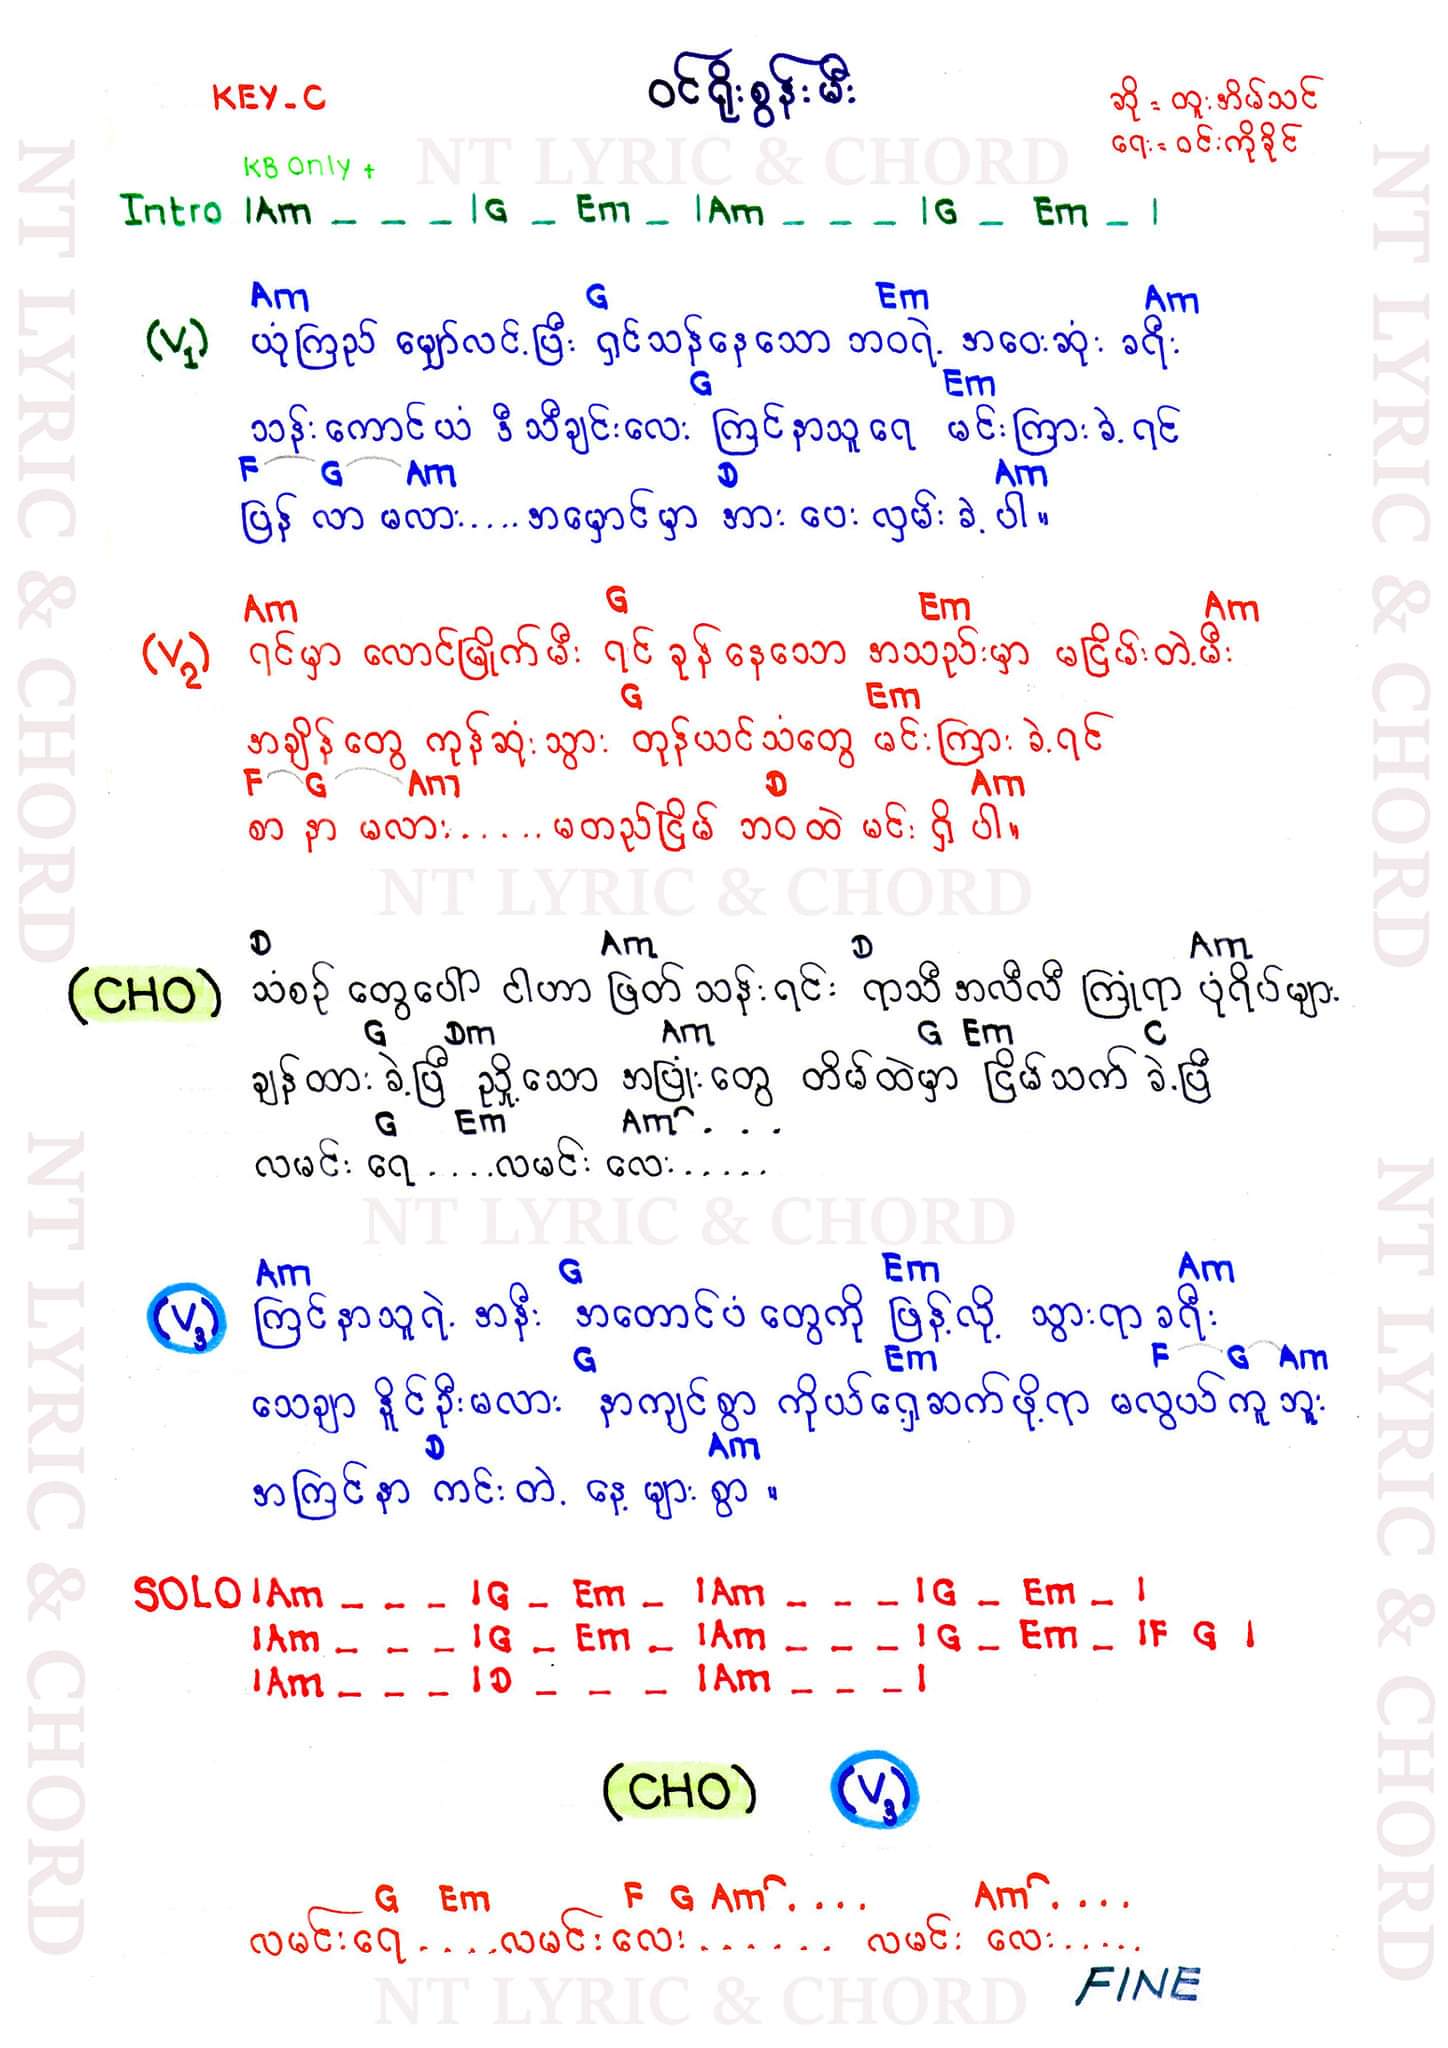 ဝင်ရိုးစွန်းမီး
KEY-C
ဆို = ထူးအိမ်သင်
ရေး = ဝင်းကိုခိုင်
NT LYRIC & CHORD
KB Only +
Intro |Am _ _ _ |G _ Em _ |Am _ _ _ |G _ Em _ |
Am G Em Am
(V1) ယုံကြည် မျှော်လင့်ပြီး ရှင်သန်နေသော ဘဝရဲ့ အဝေးဆုံး ခရီး
G Em
သန်းကောင်ယံ ဒီသီချင်းလေး ကြင်နာသူရေ မင်းကြားခဲ့ရင်
F G Am D Am
ပြန် လာ မလား.... အမှောင်မှာ အား ပေး လှမ်း ခဲ့ ပါ။
Am G Em Am
(V2) ရင်မှာ လောင်မြိုက်မီး ရင်ခုန်နေသော အသည်းမှာ မငြိမ်းတဲ့မီး
G Em
အချိန်တွေ ကုန်ဆုံးသွား တုန်ယင်သံတွေ မင်းကြား ခဲ့ရင်
F G Am D Am
စာ နာ မလား...... မတည်ငြိမ် ဘဝထဲ မင်း ရှိ ပါ။
NT LYRIC & CHORD
D Am D Am
(CHO) သံစဉ် တွေပေါ် ငါဟာ ဖြတ် သန်းရင်း ရာသီ အလီလီ ကြုံရာ ပုံရိပ်များ
G Dm Am G Em C
ချန်ထား ခဲ့ပြီ ညှို့သော အပြုံးတွေ တိမ်ထဲမှာ ငြိမ်သက် ခဲ့ပြီ
G Em Am . . .
လမင်း ရေ ....လမင်း လေး......
NT LYRIC & CHORD
Am G Em Am
(V3) ကြင်နာသူရဲ့ အနီး အတောင်ပံ တွေကို ဖြန့်လို့ သွားရာ ခရီး
G Em F G Am
သေချာ နိူင်ဦးမလား နာကျင်စွာ ကိုယ်ရှေ့ဆက်ဖို့ရာ မလွယ် ကူ ဘူး
D Am
အကြင်နာ ကင်းတဲ့ နေ့ များ စွာ ။
SOLO |Am _ _ _ |G _ Em _ |Am _ _ _ |G _ Em _ |
|Am _ _ _ |G _ Em _ |Am _ _ _ |G _ Em _ |F G |
|Am _ _ _ |D _ _ _ |Am _ _ _ |
(CHO) (V3)
G Em F G Am . . . . Am . . . .
လမင်းရေ ....လမင်းလေး ....... လမင်း လေး.....
FINE
NT LYRIC & CHORD
NT LYRIC & CHORD
NT LYRIC & CHORD
NT LYRIC & CHORD
NT LYRIC & CHORD